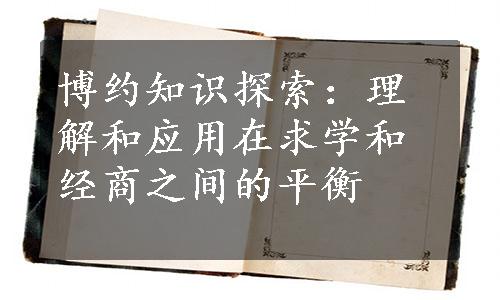 博约知识探索：理
解和应用在求学和
经商之间的平衡